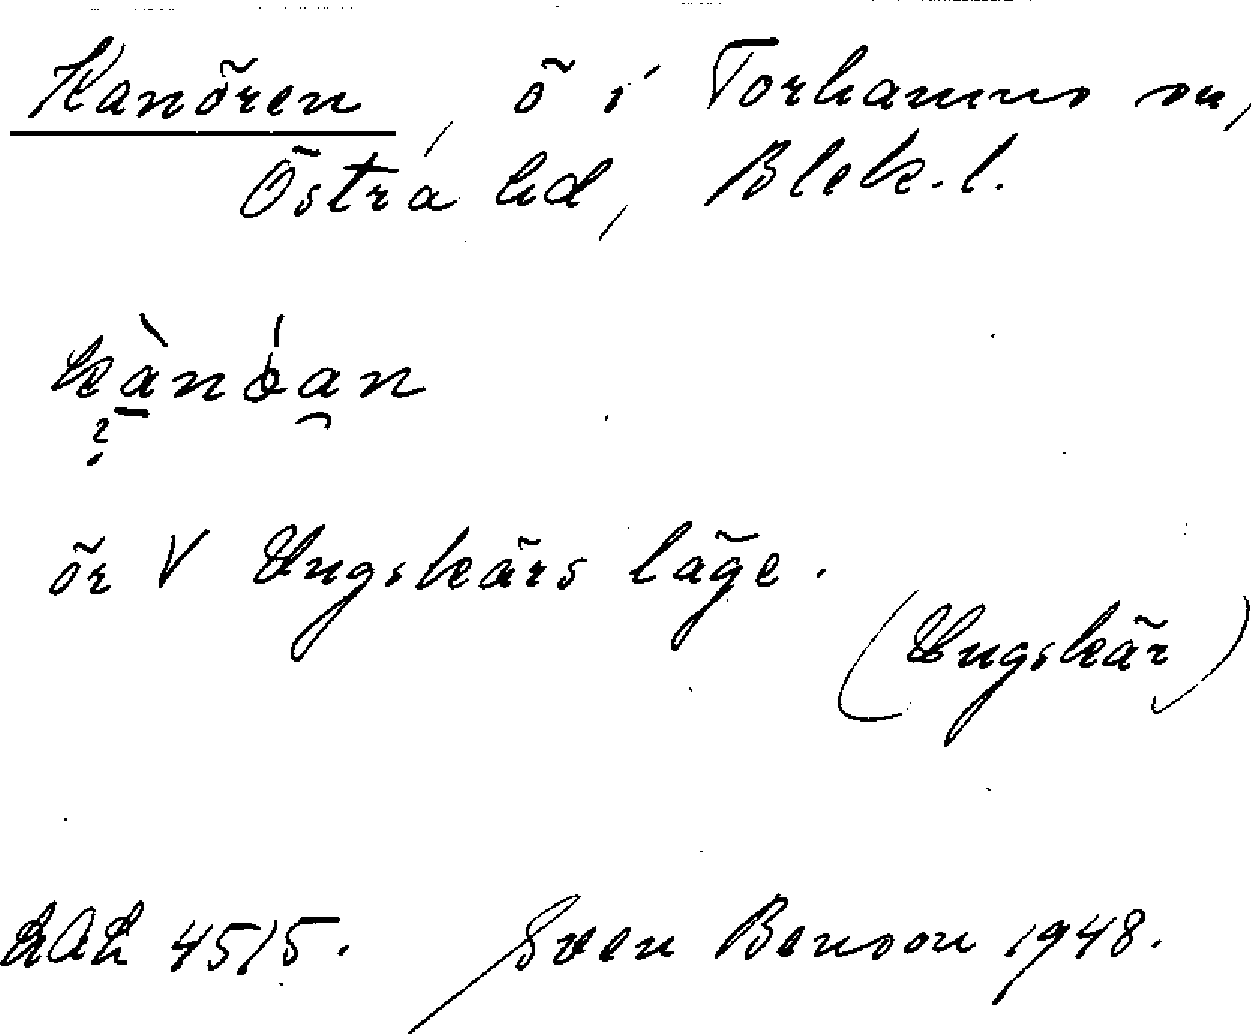 Kanören, ö i Torhamns sn,
Östra hd, Blek. l.
kànóan
?
ör V Ungskärs läge.
(Ungskär)
LAL 4515. Sven Benson 1948.